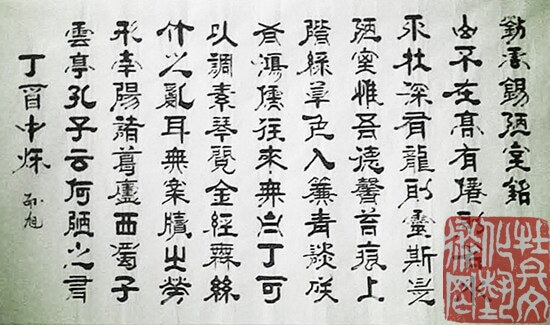 劉禹錫陋室銘
山不在高有僊則名水
不在深有龍則靈斯是
陋室惟吾德馨苔痕上
階綠草色入簾青談笑
有鴻儒往來無白丁可
以調素琴閱金經無絲
竹之亂耳無案牘之勞
形南陽諸葛廬西蜀子
雲亭孔子云何陋之有
丁酉中秋 旭
杜兵文
化藝
術網